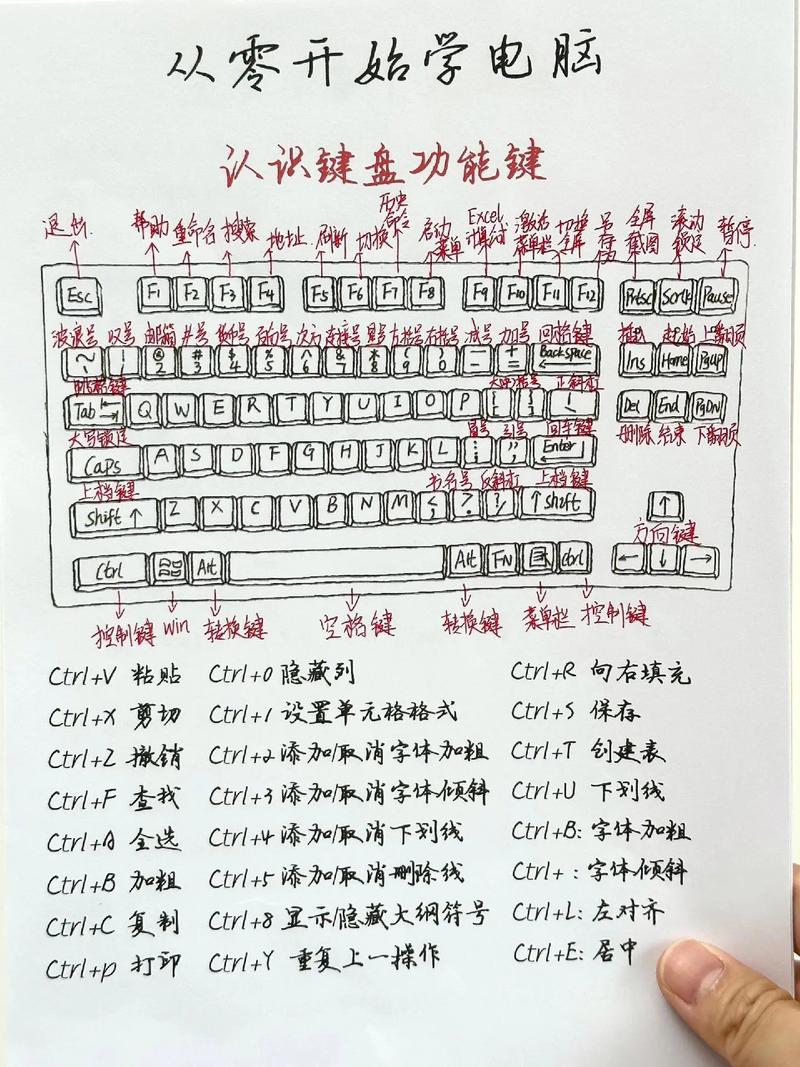 从零开始学电脑
认识键盘功能键
退出 帮助 重命名 搜索 地址 刷新 切换 历史命令 启动菜单 Excel计算公式 激活菜单栏 切换全屏 另存为 全屏截图 滚动锁定 暂停
Esc F1 F2 F3 F4 F5 F6 F7 F8 F9 F10 F11 F12 Prtsc Scrlk Pause
波浪号 叹号 邮箱 井号 货币号 百分号 次方 连接号 星号 左括号 右括号 减号 加号 回格键 插入 起始 上翻页
~ ! 1 @ 2 # 3 $ 4 % 5 ^ 6 & 7 * 8 ( 9 ) 0 — - + = Backspace Ins Home PgUp
跳格键 大中括号 正斜杠
Tab Q W E R T Y U I O P { [ } ] | \ Del End PgDn
大写锁定 冒号 引号 回车键 删除 结束 下翻页
Caps A S D F G H J K L : ; " ' Enter
上档键 书名号 反斜杠 上档键
Shift ↑ Z X C V B N M < , > . ? / ↑ Shift ↑
方向键
Ctrl Alt Alt FN Ctrl ← ↓ →
控制键 Win 转换键 空格键 转换键 菜单栏 控制键
Ctrl+V 粘贴 Ctrl+0 隐藏列 Ctrl+R 向右填充
Ctrl+X 剪切 Ctrl+1 设置单元格格式 Ctrl+S 保存
Ctrl+Z 撤销 Ctrl+2 添加/取消字体加粗 Ctrl+T 创建表
Ctrl+F 查找 Ctrl+3 添加/取消字体倾斜 Ctrl+U 下划线
Ctrl+A 全选 Ctrl+4 添加/取消下划线 Ctrl+B: 字体加粗
Ctrl+B 加粗 Ctrl+5 添加/取消删除线 Ctrl+ : 字体倾斜
Ctrl+C 复制 Ctrl+8 显示/隐藏大纲符号 Ctrl+L: 左对齐
Ctrl+p 打印 Ctrl+Y 重复上一操作 Ctrl+E: 居中